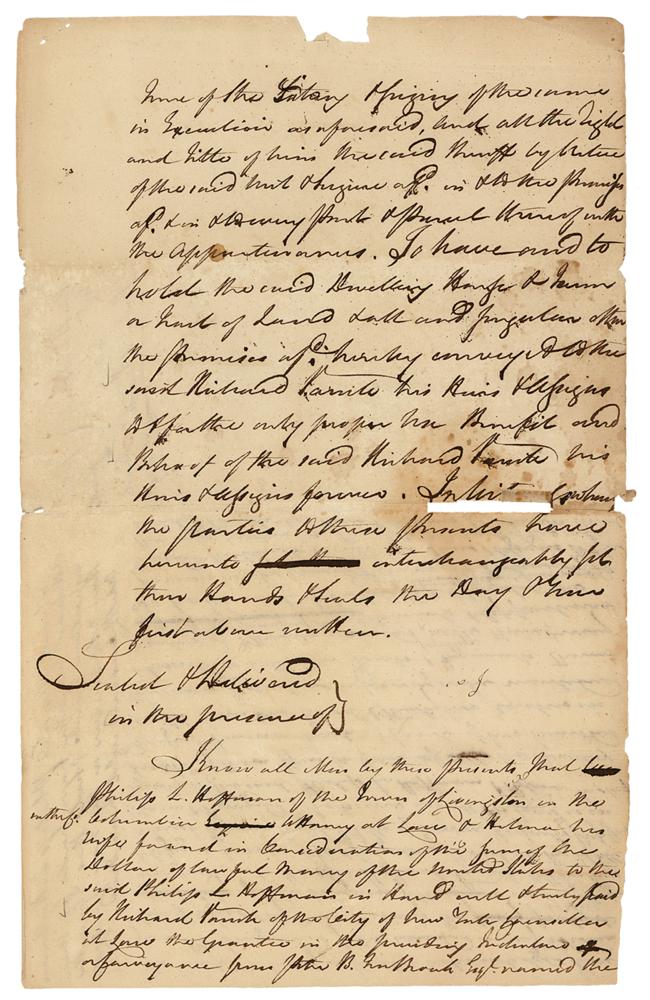 time of the Entry & Seizing of the same
in Execution as aforesaid, and all the Right
and Title of him the said Sheriff by Virtue
of the said Writ & Seizure afd. in & to the Premises
afd. & in & to every Part & Parcel thereof with
the Appurtenances. To have and to
hold the said Dwelling House & Farm
or Tract of Land & all and Singular other
the Premises afd. hereby conveyed to the
said Richard Varick his Heirs & Assigns
to & for the only proper Use Benefit and
Behoof of the said Richard Varick his
Heirs & Assigns forever. In Wits. whereof
the parties to these presents have
hereunto interchangeably set
their Hands & Seals the Day & Year
first above written.
Sealed & Delivered
in the presence of
Know all Men by these Presents, that
Philip L. Hoffman of the Town of Livingston in the
Columbia Attorney at Law & Helena his
Wife for and in Consideration of the Sum of One
Dollar of lawful Money of the United States to the
said Philip L Hoffman in Hand well & truly paid
by Richard Varick of the City of New York Counsellor
at Law the Grantee in the preceding Indenture
or Conveyance from John B. Esqr. named the